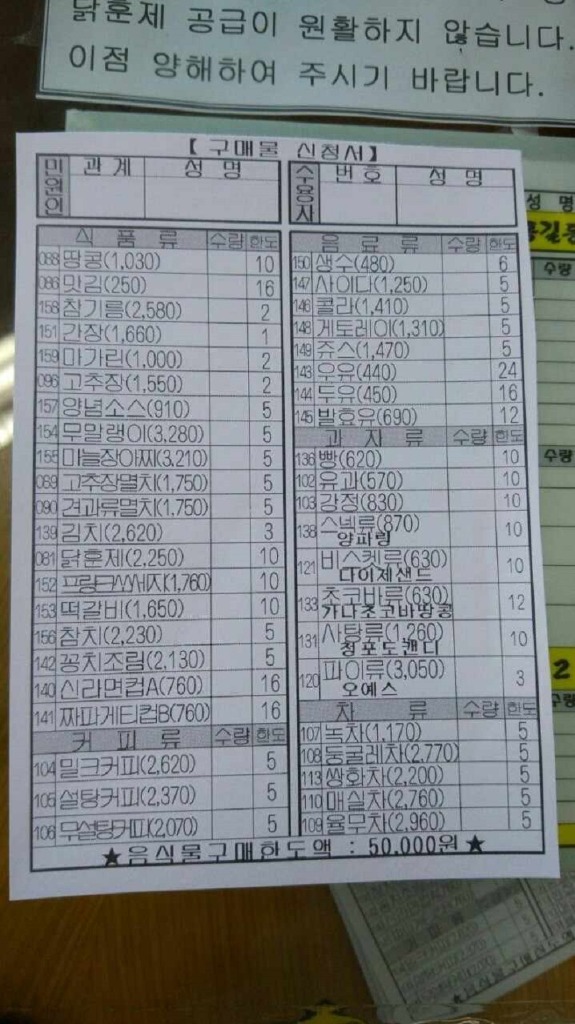 닭훈제 공급이 원활하지 않습니다.
이점 양해하여 주시기 바랍니다.
【 구매물 신청서】
민원인 관 계 성 명
수용자 번 호 성 명
식 품 류 수량 한도
088 땅콩(1,030) 10
086 맛김(250) 16
158 참기름(2,580) 2
151 간장(1,660) 1
159 마가린(1,000) 2
096 고추장(1,550) 2
157 양념소스(910) 5
154 무말랭이(3,280) 5
155 마늘장아찌(3,210) 5
089 고추장멸치(1,750) 5
090 견과류멸치(1,750) 5
139 김치(2,620) 3
081 닭훈제(2,250) 10
152 프랑크쏘세지(1,760) 10
153 떡갈비(1,650) 10
156 참치(2,230) 5
142 꽁치조림(2,130) 5
140 신라면컵A(760) 16
141 짜파게티컵B(760) 16
커 피 류 수량 한도
104 밀크커피(2,620) 5
105 설탕커피(2,370) 5
106 무설탕커피(2,070) 5
음 료 류 수량 한도
150 생수(480) 6
147 사이다(1,250) 5
146 콜라(1,410) 5
148 게토레이(1,310) 5
149 쥬스(1,470) 5
143 우유(440) 24
144 두유(450) 16
145 발효유(690) 12
과 자 류 수량 한도
136 빵(620) 10
102 유과(570) 10
103 강정(830) 10
138 스넥류(870) 10
양파링
121 비스켓류(630) 10
다이제샌드
133 초코바류(630) 12
가나초코바땅콩
131 사탕류(1,260) 10
청포도캔디
120 파이류(3,050) 3
오예스
차 류 수량 한도
107 녹차(1,170) 5
108 둥굴레차(2,770) 5
113 쌍화차(2,200) 5
110 매실차(2,760) 5
109 율무차(2,960) 5
★음식물구매한도액 : 50,000원★
성 명
홍길동
수량
수량
2
수량